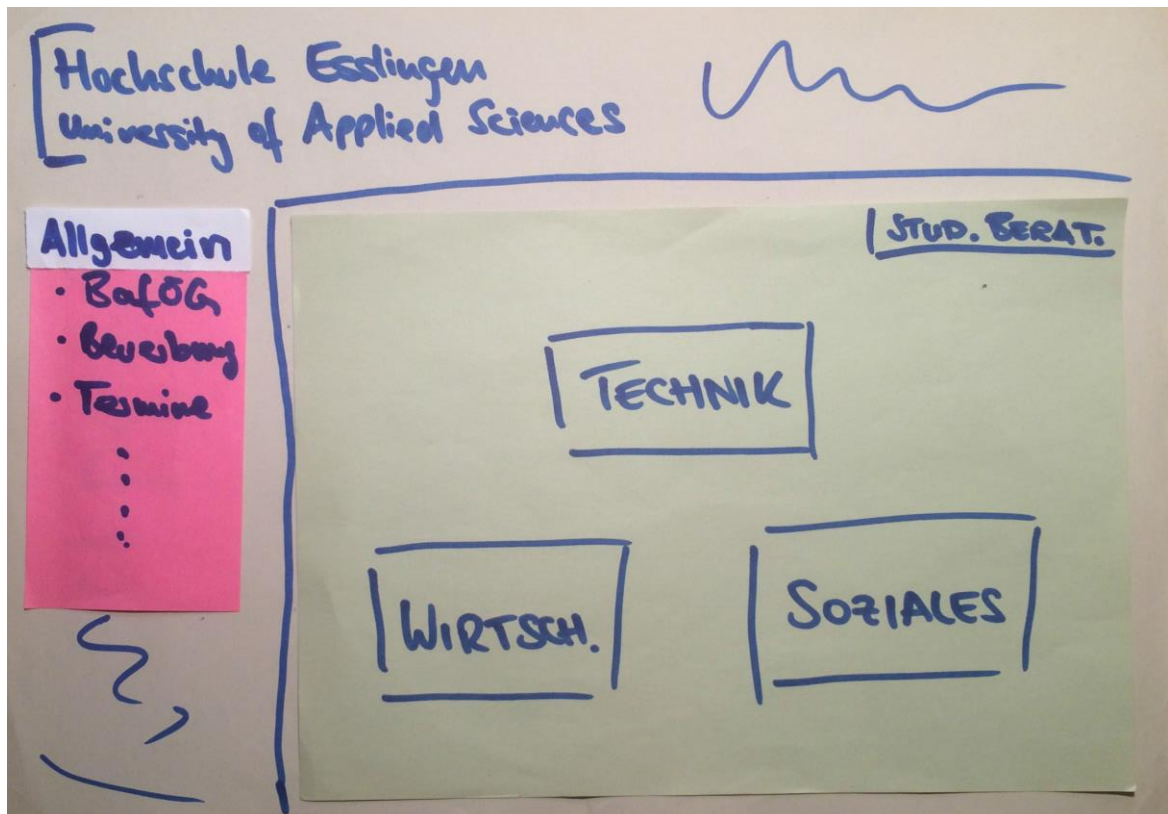 Hochschule Esslingen
University of Applied Sciences
Allgemein
• BafÖG
• Bewerbung
• Termine
STUD. BERAT.
TECHNIK
WIRTSCH.
SOZIALES